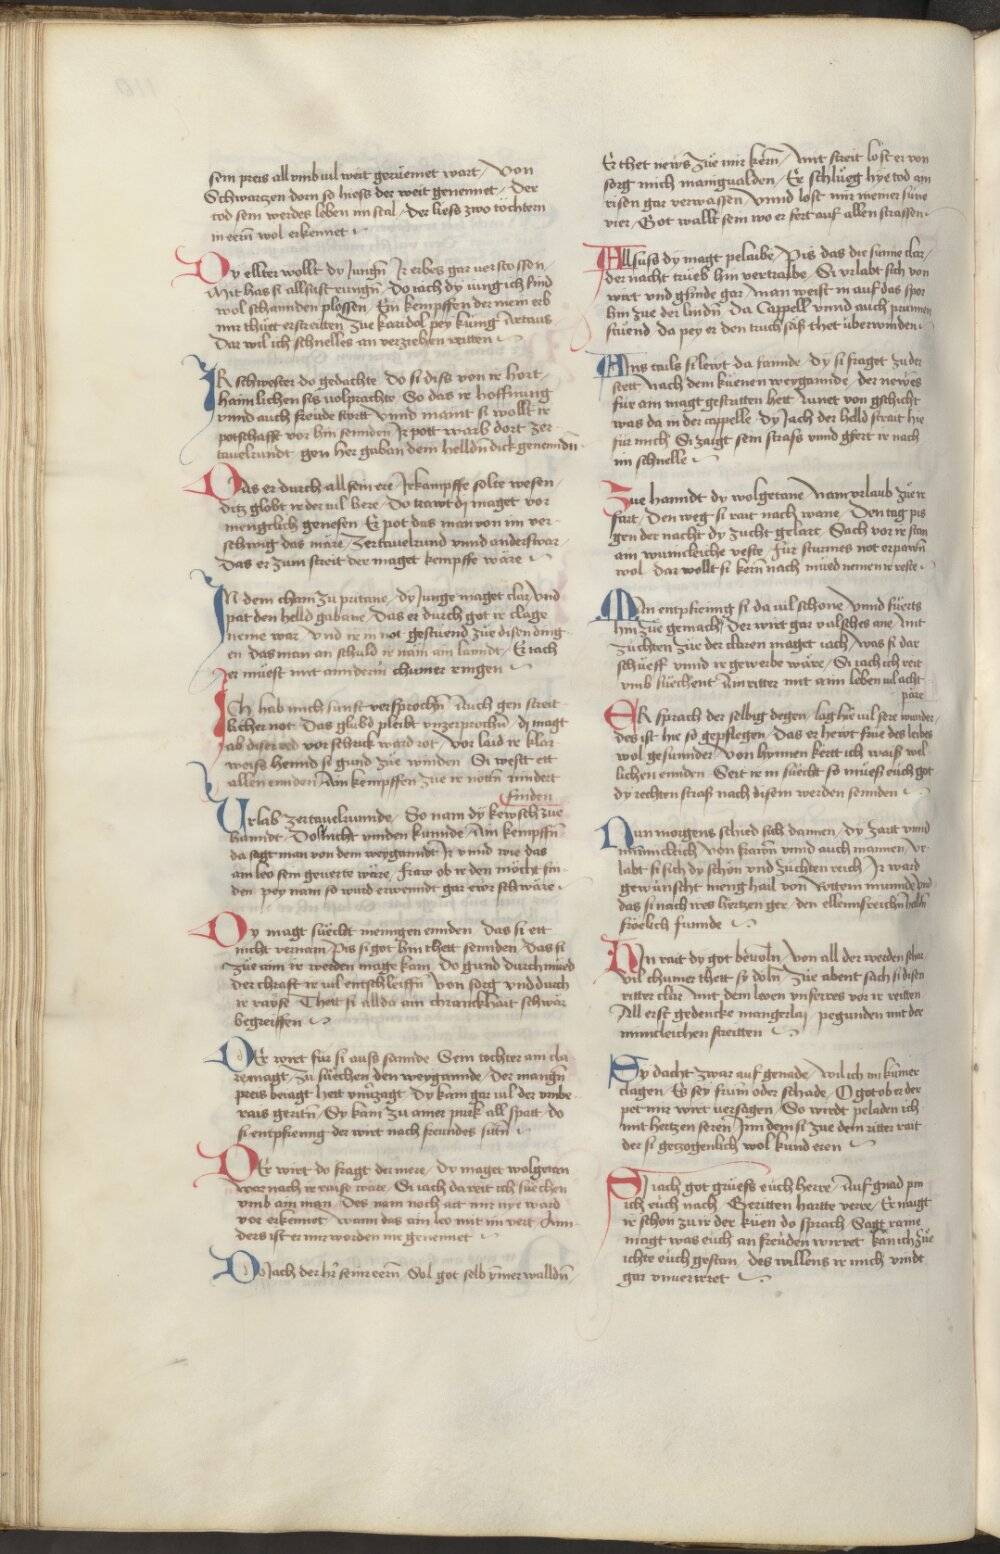 sein preis all vmb vil weit geruemet wart / Von
Schwartzen dorn so hiess der weit genennet / Der
tod sein werdes leben im stal / der liess zwo töchtern
in eern wol erkennet
Dy ellter wollt dy Jungn Jr erbes gar verstossen /
Mit has si allsust rungn Do iach dy iung ich sind
wol schannden plossen / Ein kempffen der mein erb
mir thuet erstreitten Zue karidol pey kunig Artaus
Dar wil ich schnelles an verziehen reitten
IR schwester do gedachte do si diss von ir hort /
haimlichen sis volprachte So das ir hoffnung
vnnd auch freude stortt vnnd maint si wollt ir
potschafft vor hin sennden Jr pott warb dort zer
tauelrundt gen her gaban dem helldn dick genenndn
Das er durch all sein ere Jr kampffe solte wesen /
ditz globt ir der vil here / Do trawt dy maget vor
mengclich genesen Er pot das man von im ver
schwig das märe / Zertauelrund vnnd anderswar
Das er zum streit der maget kempffe wäre
IN dem cham zu pritane / dy Junge maget clar vnd
pat den helld gabane Das er durch got ir clage
neme war / vnd ir in not gestuend zue disen ding
en das man an schuld ir näm am lanndt / Er iach
Jer müest mit anndern chumer ringen
Ich hab mich sunst versprochn Auch gen streit
licher not / Das glubd pleibt vnzerprochn / dy magt
ab diser red vor schrick ward rot / vor laid ir klar
weisse hennd si gund zue winden Si westt ett
allen ennden Ain kempffen zue ir nottn nindert
finden
Urlab zertauelrunnde / So nam dy kewsch zue
hanndt / Do si nicht vinden kunnde / Ain kempffn
da sagt man von dem weyganndt Jr vnnd wie das
ain leo sein geuerte wäre / fraw ob ir den möcht fin
den pey nam so wurd erwenndt gar ewr schwäre
Dy magt suecht meningen ennden Das si ett
nicht vernam Pis si got hin thett sennden Das si
zue aim ir werden mage kam / Do gund durch mued
der chrafft ir vil entschleiffn Von sorg vnd durch
ir rayse Thett si allda ain chranckhait schwär
begreiffen
DEr wirt für si auss sannde Sein tochter ain cla
re magt / zu suechen den weygannde / der mangn
preis beiagt hett vnuerzagt Dy kam gar vil der vmbe
rais geritn / Dy kam zu ainer purk all spätt do
si entpfienng der wirt nach freundes sittn
DEr wirt do fragt der mere / dy maget wolgetan
war nach ir raise ware / Si iach da reit ich suechen
vmb ain man / Des nam noch art mir nye ward
vor erkennet / wann das ain leo mit im vert Ann
ders ist er mir worden nie genennet
Do Jach der hr sein eern Sol got selb ymer walldn /
Er thet news zue mir kern / Mit streit löst er von
sorg mich manigualden / Er schlueg hye tod ain
risen gar verwassen / Vnnd lost mir meiner süne
vier / Got wallt sein wo er fert auf allen strassen
Allsuss dy magt pelaibe / Pis das die sunne clar /
der nacht trueb hin vertraibe / Si vrlabt sich von
wirt vnd gsinde gar / Man weist in auf das spor
hin zue der lindn / da Cappell vnnd auch prunnen
stuend / da pey er den truchsäss thet uberwinden
Ains tails si lewt da fannde / dy si fraget zu der
stett Nach dem küenen weygannde / der newes
für ain magt gestritten hett Vnet von gschicht
was da in der cappelle / Dy Jach der helld strait hye
für mich Si zaigt sein strass vnnd gfert ir nach
im schnelle
Zue hanndt dy wolgetane Nam vrlaub zue ir
fart / Den weg si rait nach wane / Den tag pis
gen der nacht dy zucht gelart / Sach vor ir stan
ain wunicleiche veste / für sturmes not erpawn
wol / dar wollt si kern nach mued nemen ir reste
Man entpfienng si da vil schone Vnnd fuerts
hin zue gemach / Der wirt gar valsches ane / Mit
züchten zue der claren maget iach / was si dar
schueff vnnd ir gewerbe wäre / Si iach ich reit
vmb suechent Ain ritter mit aim leben vil acht
päre
ER sprach der selbig degen / lag hie vil sere wunder /
des ist hie so gepflegen / Das er hewt frue des leibes
wol gesunnder / Von hynnen kertt ich waiss wel
lichen ennden Seit ir in suecht so muess euch got
dy rechten strass nach disem werden sennden
Nun morgens schied sich dannen / dy zart vnnd
minnicleich / Von frawn vnnd auch mannen / Vr
labt si sich dy schön vnd züchten reich / Jr ward
gewünscht meng hail von Rittern munnde vnd
das si nach irs hertzen ger / den ellennsreichn helld
frölich funnde
Nu rait dy got beuoln / von all der werden schar
Vil chumer thett sy doln / Zue abent sach si disen
ritter clar / Mit dem leoen vnferres vor ir reitten
All erst gedencke mangerlai / pegunden mit der
minicleichen streitten
Sy dacht zwar auf genade / wil ich im kumer
clagen / Es sey frum oder schade / O got ob er der
pet mir wirt versagen / So wirdt peladen ich
mit hertzen seren Jnn dem si zue dem ritter rait
der si getzogenlich wol kund eren
Si iach got gruess euch herre / Auf gnad pin
ich euch nach / Geritten hartte verre / Er naigt
ir schon zu ir der küen do sprach / Sagt raine
magt was euch an freuden wirret / kan ich zue
ichte euch gestan / des willens ir mich vindt
gar vnuerirret